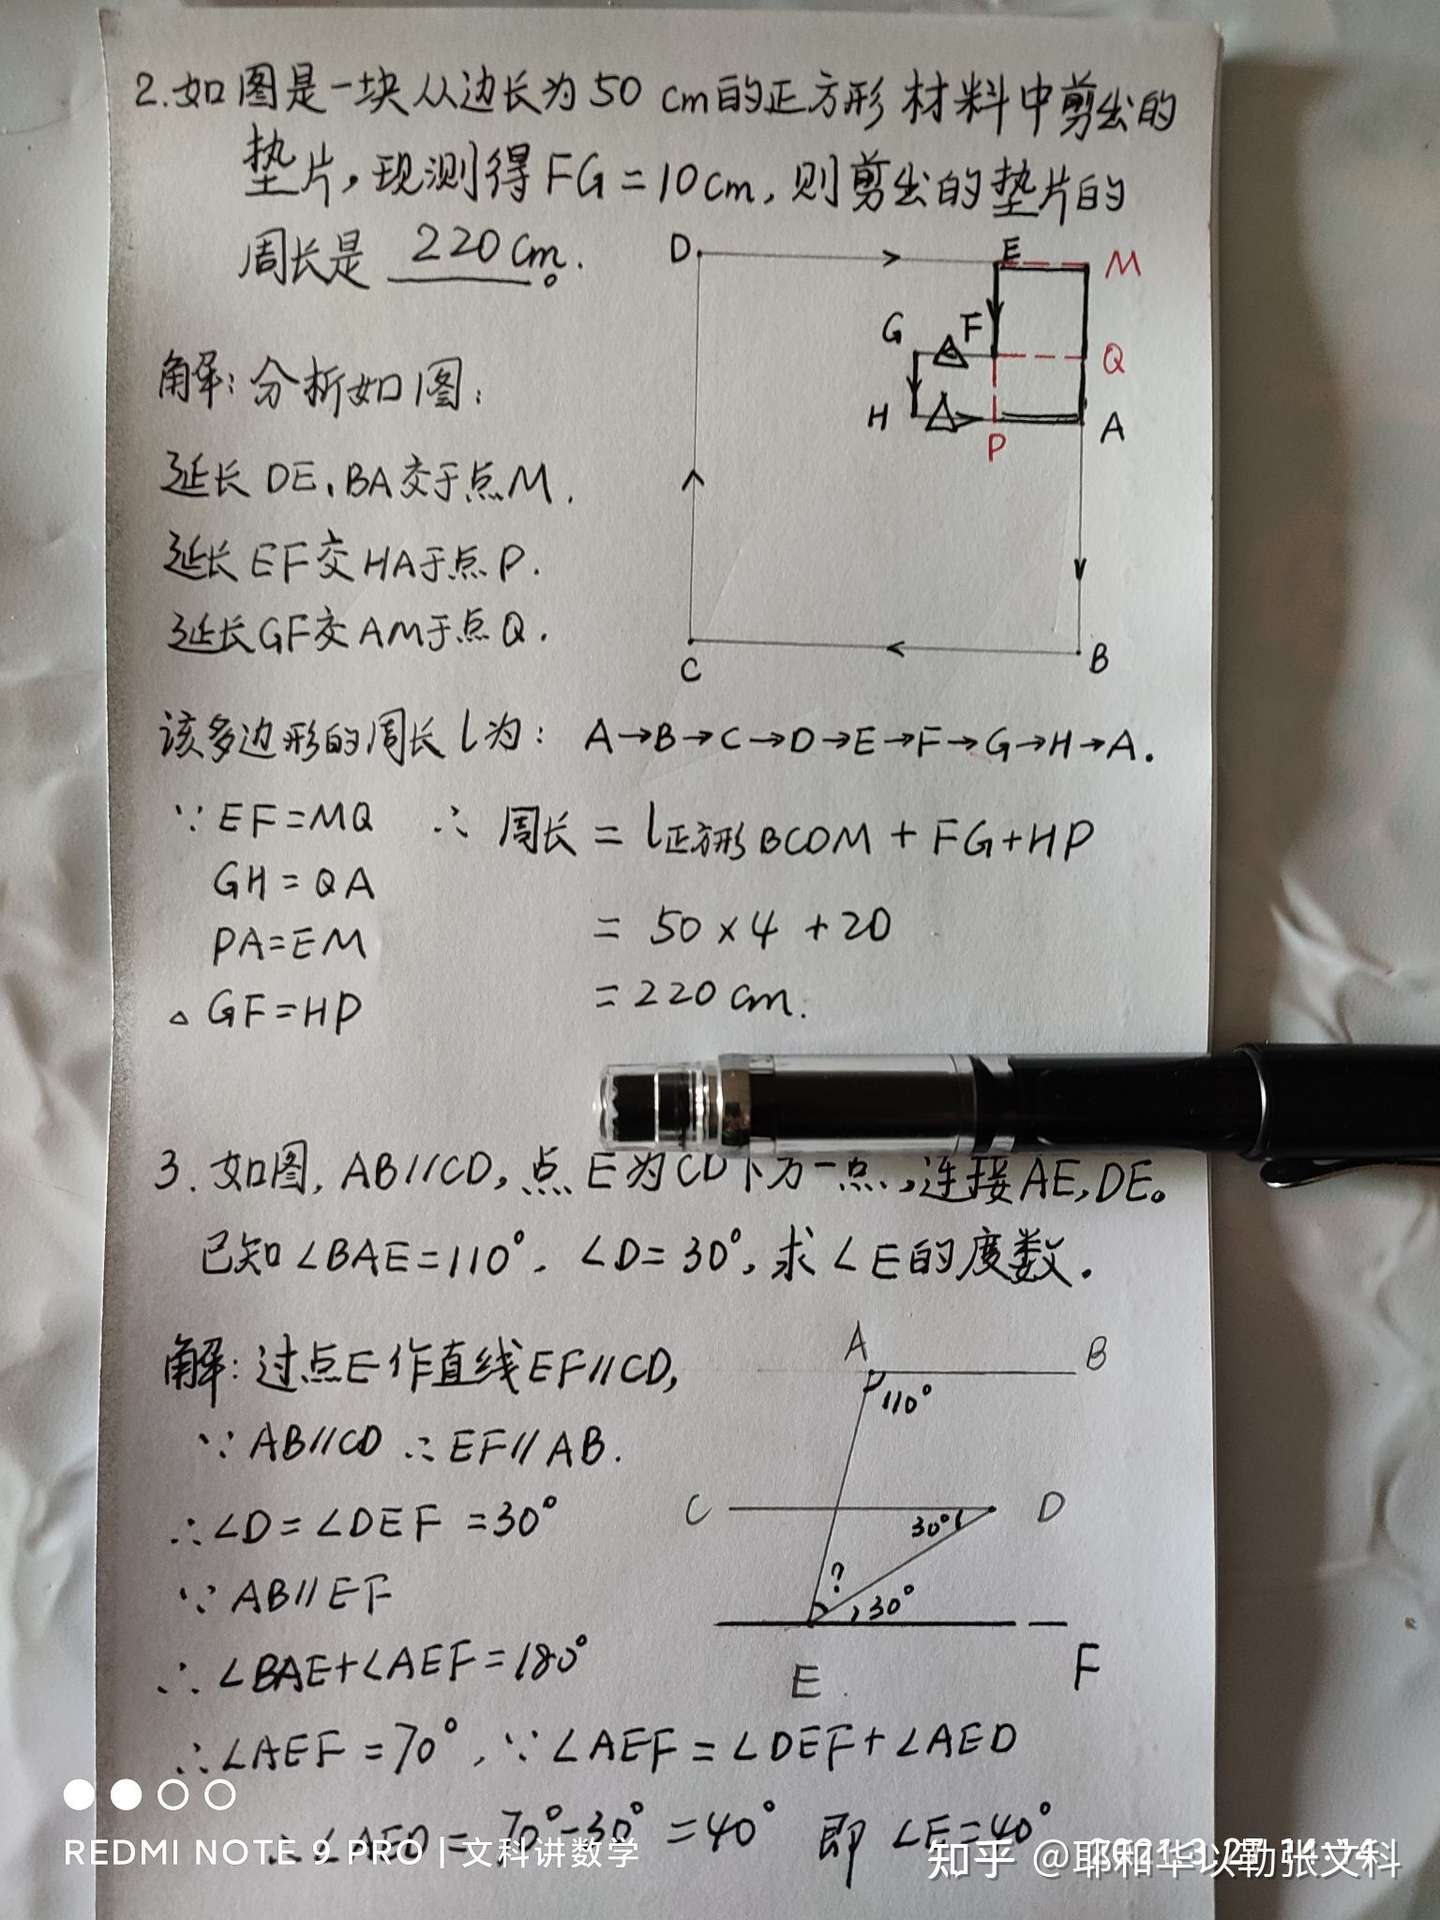 2.如图是一块从边长为50 cm的正方形材料中剪出的
垫片,现测得FG=10cm,则剪出的垫片的
周长是 220cm.。
D E M
G F Q
H P A
C B
解:分析如图:
延长DE、BA交于点M.
延长EF交HA于点P.
延长GF交AM于点Q.
该多边形的周长l为: A→B→C→D→E→F→G→H→A.
∵EF=MQ ∴周长=l正方形BCDM+FG+HP
GH=QA
=50×4+20
PA=EM
=220cm.
△GF=HP
3.如图,AB//CD,点E为CD下方一点,连接AE,DE。
已知∠BAE=110°,∠D=30°,求∠E的度数.
解:过点E作直线EF//CD,
A B
110°
∵AB//CD ∴EF//AB.
C D
30°
∴∠D=∠DEF=30°
?
30°
∵AB//EF
E F
∴∠BAE+∠AEF=180°
∴∠AEF=70°,∵∠AEF=∠DEF+∠AED
∴∠AED=70°-30°=40° 即∠E=40°
REDMI NOTE 9 PRO | 文科讲数学
知乎 @耶和华以勒张文科